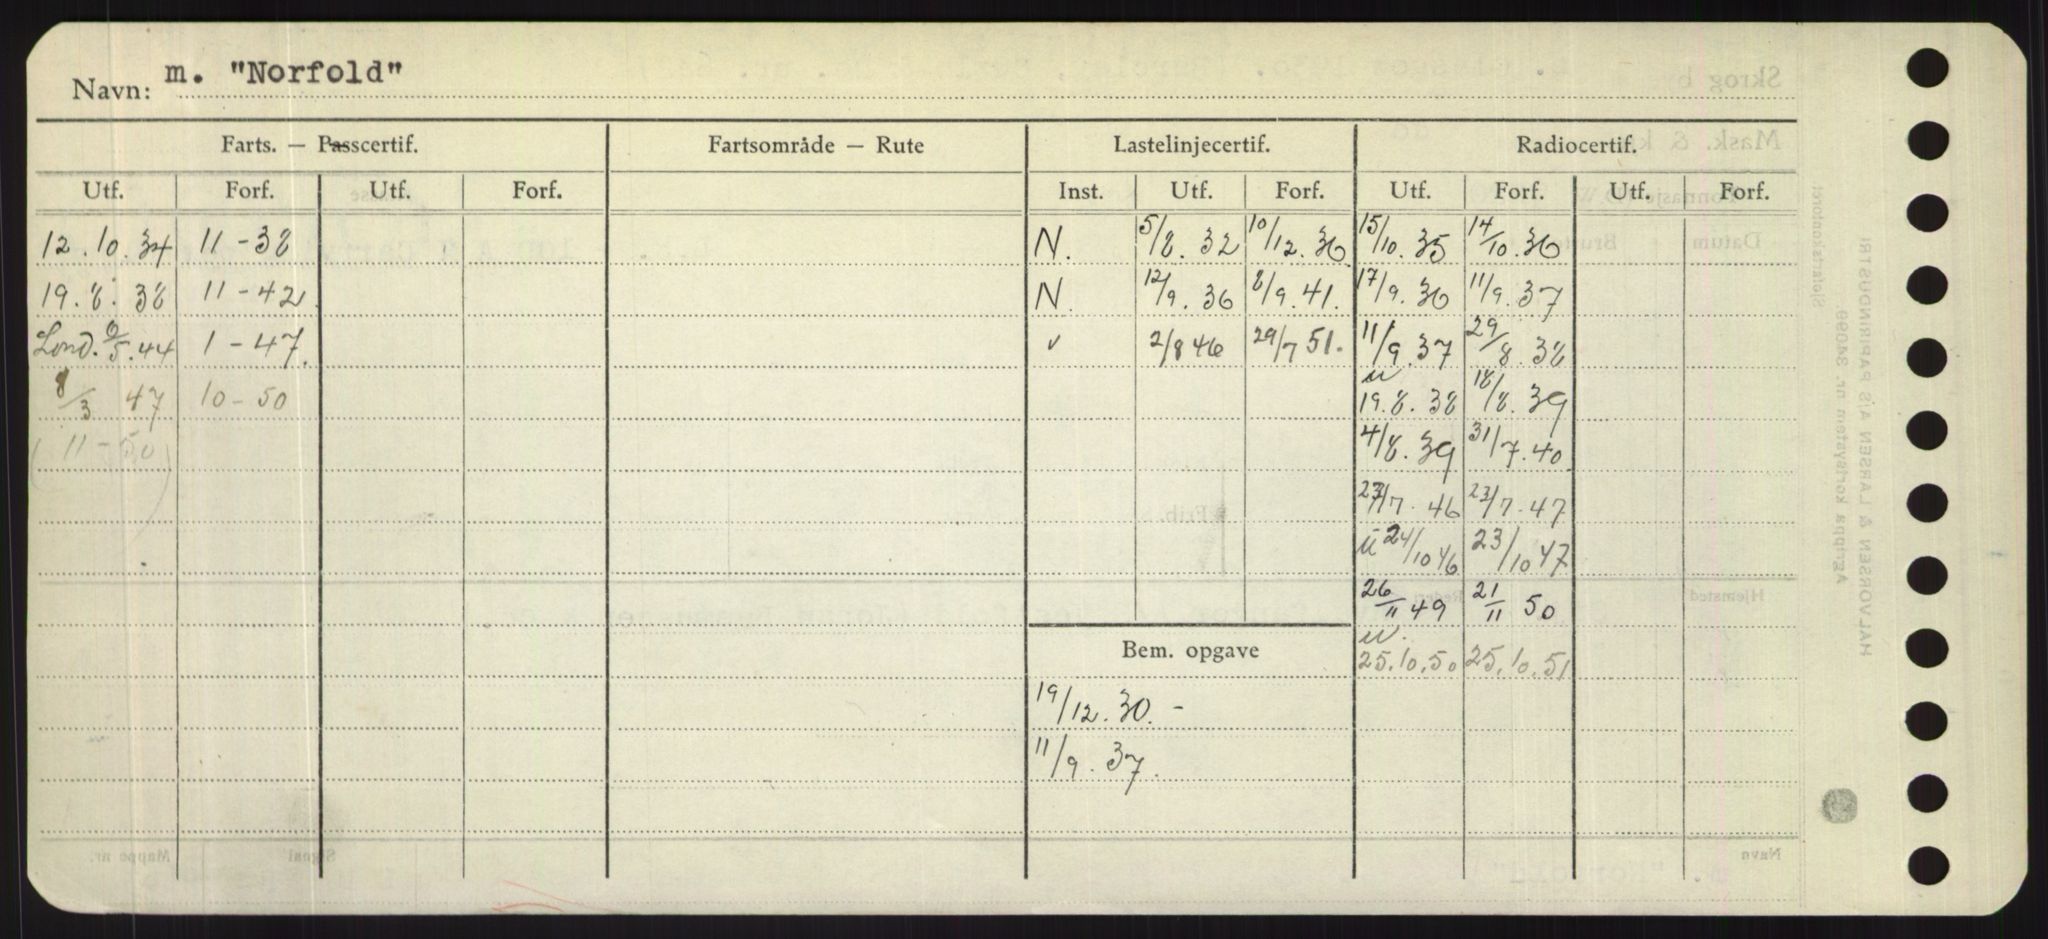 Navn: m. "Norfold"
Farts. — Passcertif. Fartsområde — Rute Lastelinjecertif. Radiocertif.
Utf. Forf. Utf. Forf. Inst. Utf. Forf. Utf. Forf. Utf. Forf.
12.10.34 11-38 N. 5/8.32 10/12.36 15/10.35 14/10.36
19.8.38 11-42 N. 12/9.36 8/9.41. 17/9.36 11/9.37
Lond. 6/5.44 1-47. 2/8 46 29/7 51. 11/9.37 29/8.38
8/3 47 10-50 19.8.38 18/8.39
(11-50) 4/8.39 31/7.40
23/7.46 23/7.47
24/10 46 23/10 47
26/11 49 21/11 50
Bem. opgave 25.10.50 25.10.51
19/12.30.-
11/9.37.